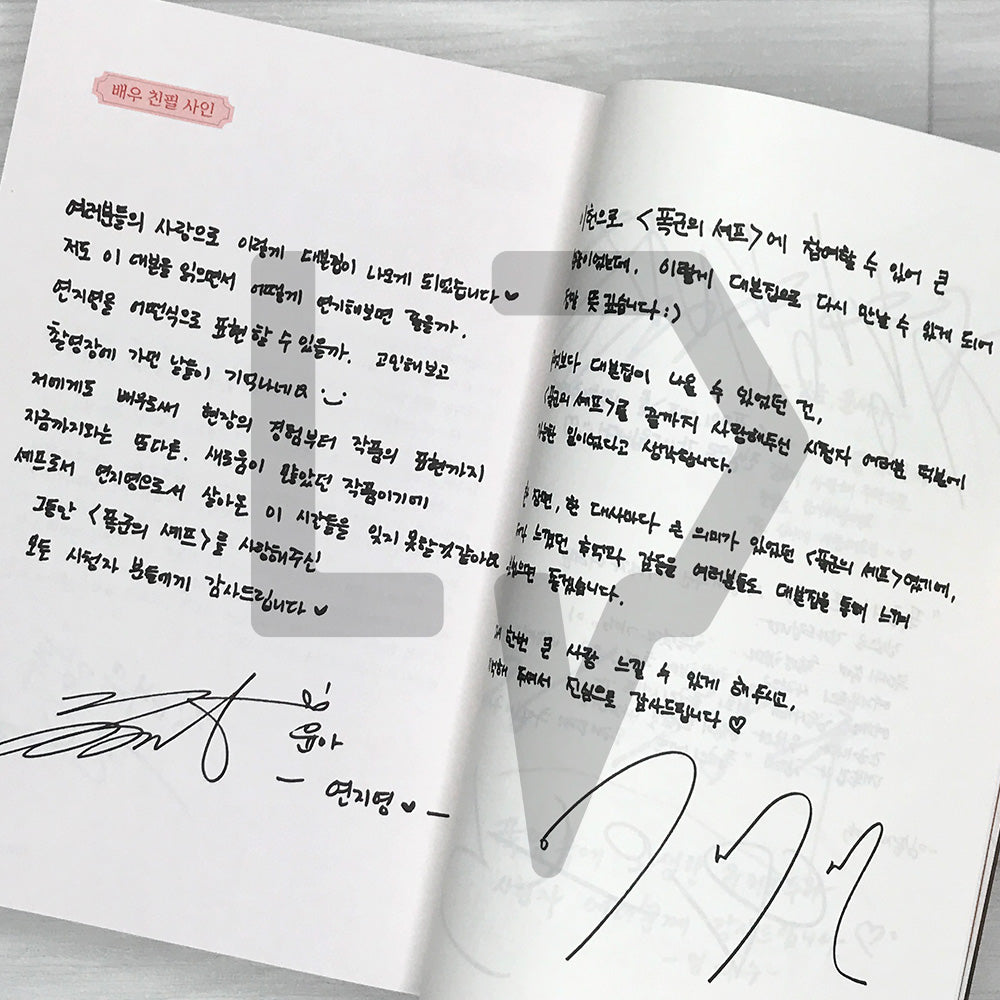 배우 친필 사인
여러분들의 사랑으로 이렇게 대본집이 나오게 되었습니다♥
저도 이 대본을 읽으면서 어떻게 연기해보면 좋을까.
연지영을 어떤식으로 표현 할 수 있을까. 고민해보고
촬영장에 가던 날들이 기억나네요 :)
저에게도 배우로써 현장의 경험부터 작품의 표현까지
지금까지와는 또다른. 새로움이 많았던 작품이기에
셰프로서 연지영으로서 살아온 이 시간들을 잊지 못할것 같아요
그동안 <폭군의 셰프>를 사랑해주신
모든 시청자 분들에게 감사드립니다♥
윤아
- 연지영♥ -
이헌으로 <폭군의 셰프>에 참여할 수 있어 큰
이렇게 대본집으로 다시 만날 수 있게 되어
정말 뜻 깊습니다:)
대본집이 나올 수 있었던 건,
<폭군의 셰프>를 끝까지 사랑해주신 시청자 여러분 덕분에
가능한 일이었다고 생각합니다.
한 장면, 한 대사마다 큰 의미가 있었던 <폭군의 셰프>였기에,
느꼈던 추억과 감동을 여러분들도 대본집을 통해 느껴
좋겠습니다.
한번 큰 사랑 느낄 수 있게 해주시고,
주셔서 진심으로 감사드립니다♡